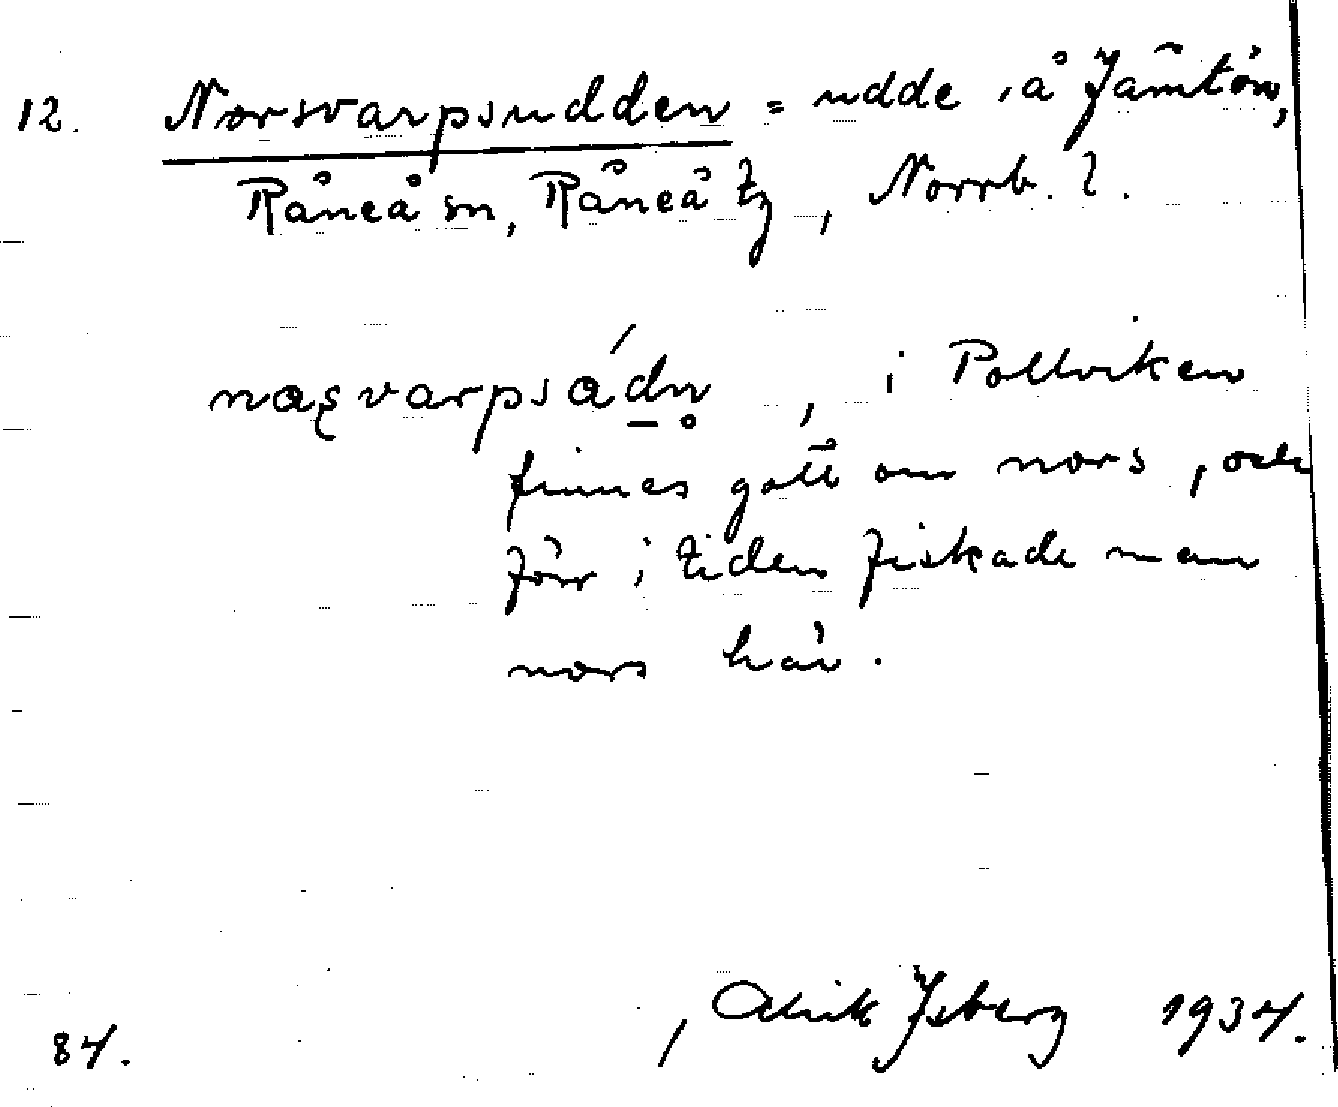 12. Norsvarpsudden = udde i å Jämtön,
Råneå sn, Råneå tg, Norrb. l.
i Pollviken
finnes gott om nors, och
förr i tiden fiskade man
nors här.
84. Alrik Ysberg 1934.